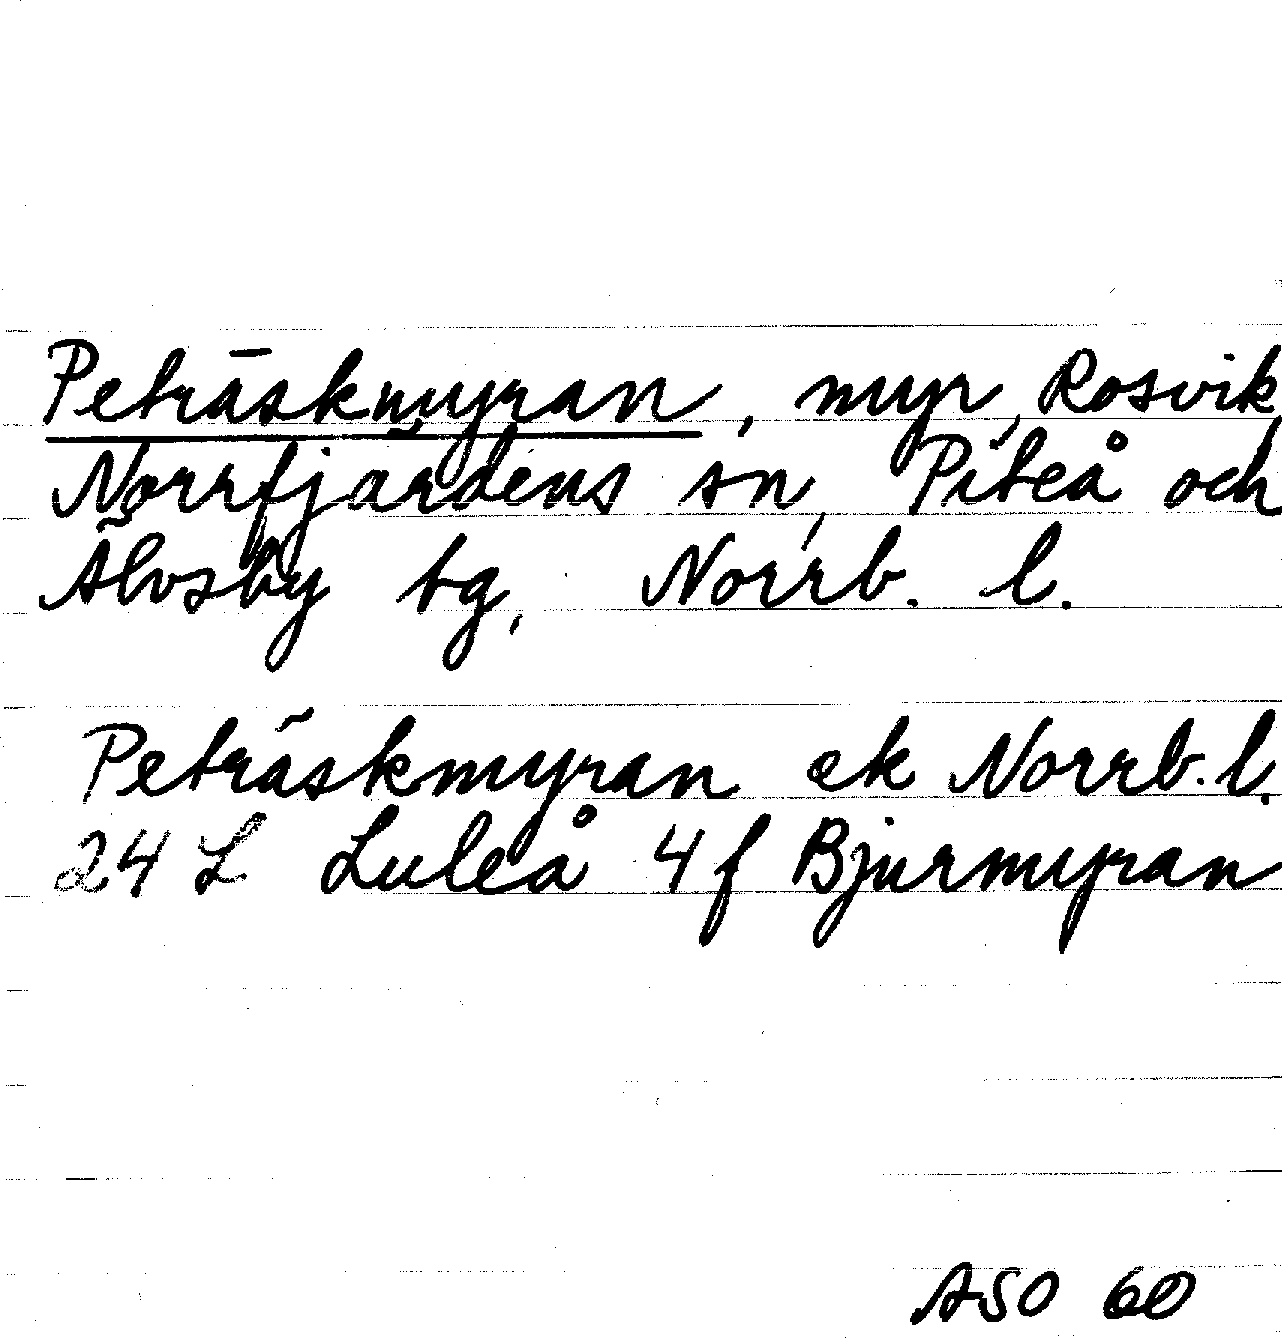 Peträskmyran, myr, Rosvik,
Norrfjärdens sn, Piteå och
Älvsby tg, Norrb. l.
Peträskmyran ek Norrb. l.
24 L Luleå 4 f Bjurmyran
ASO 60